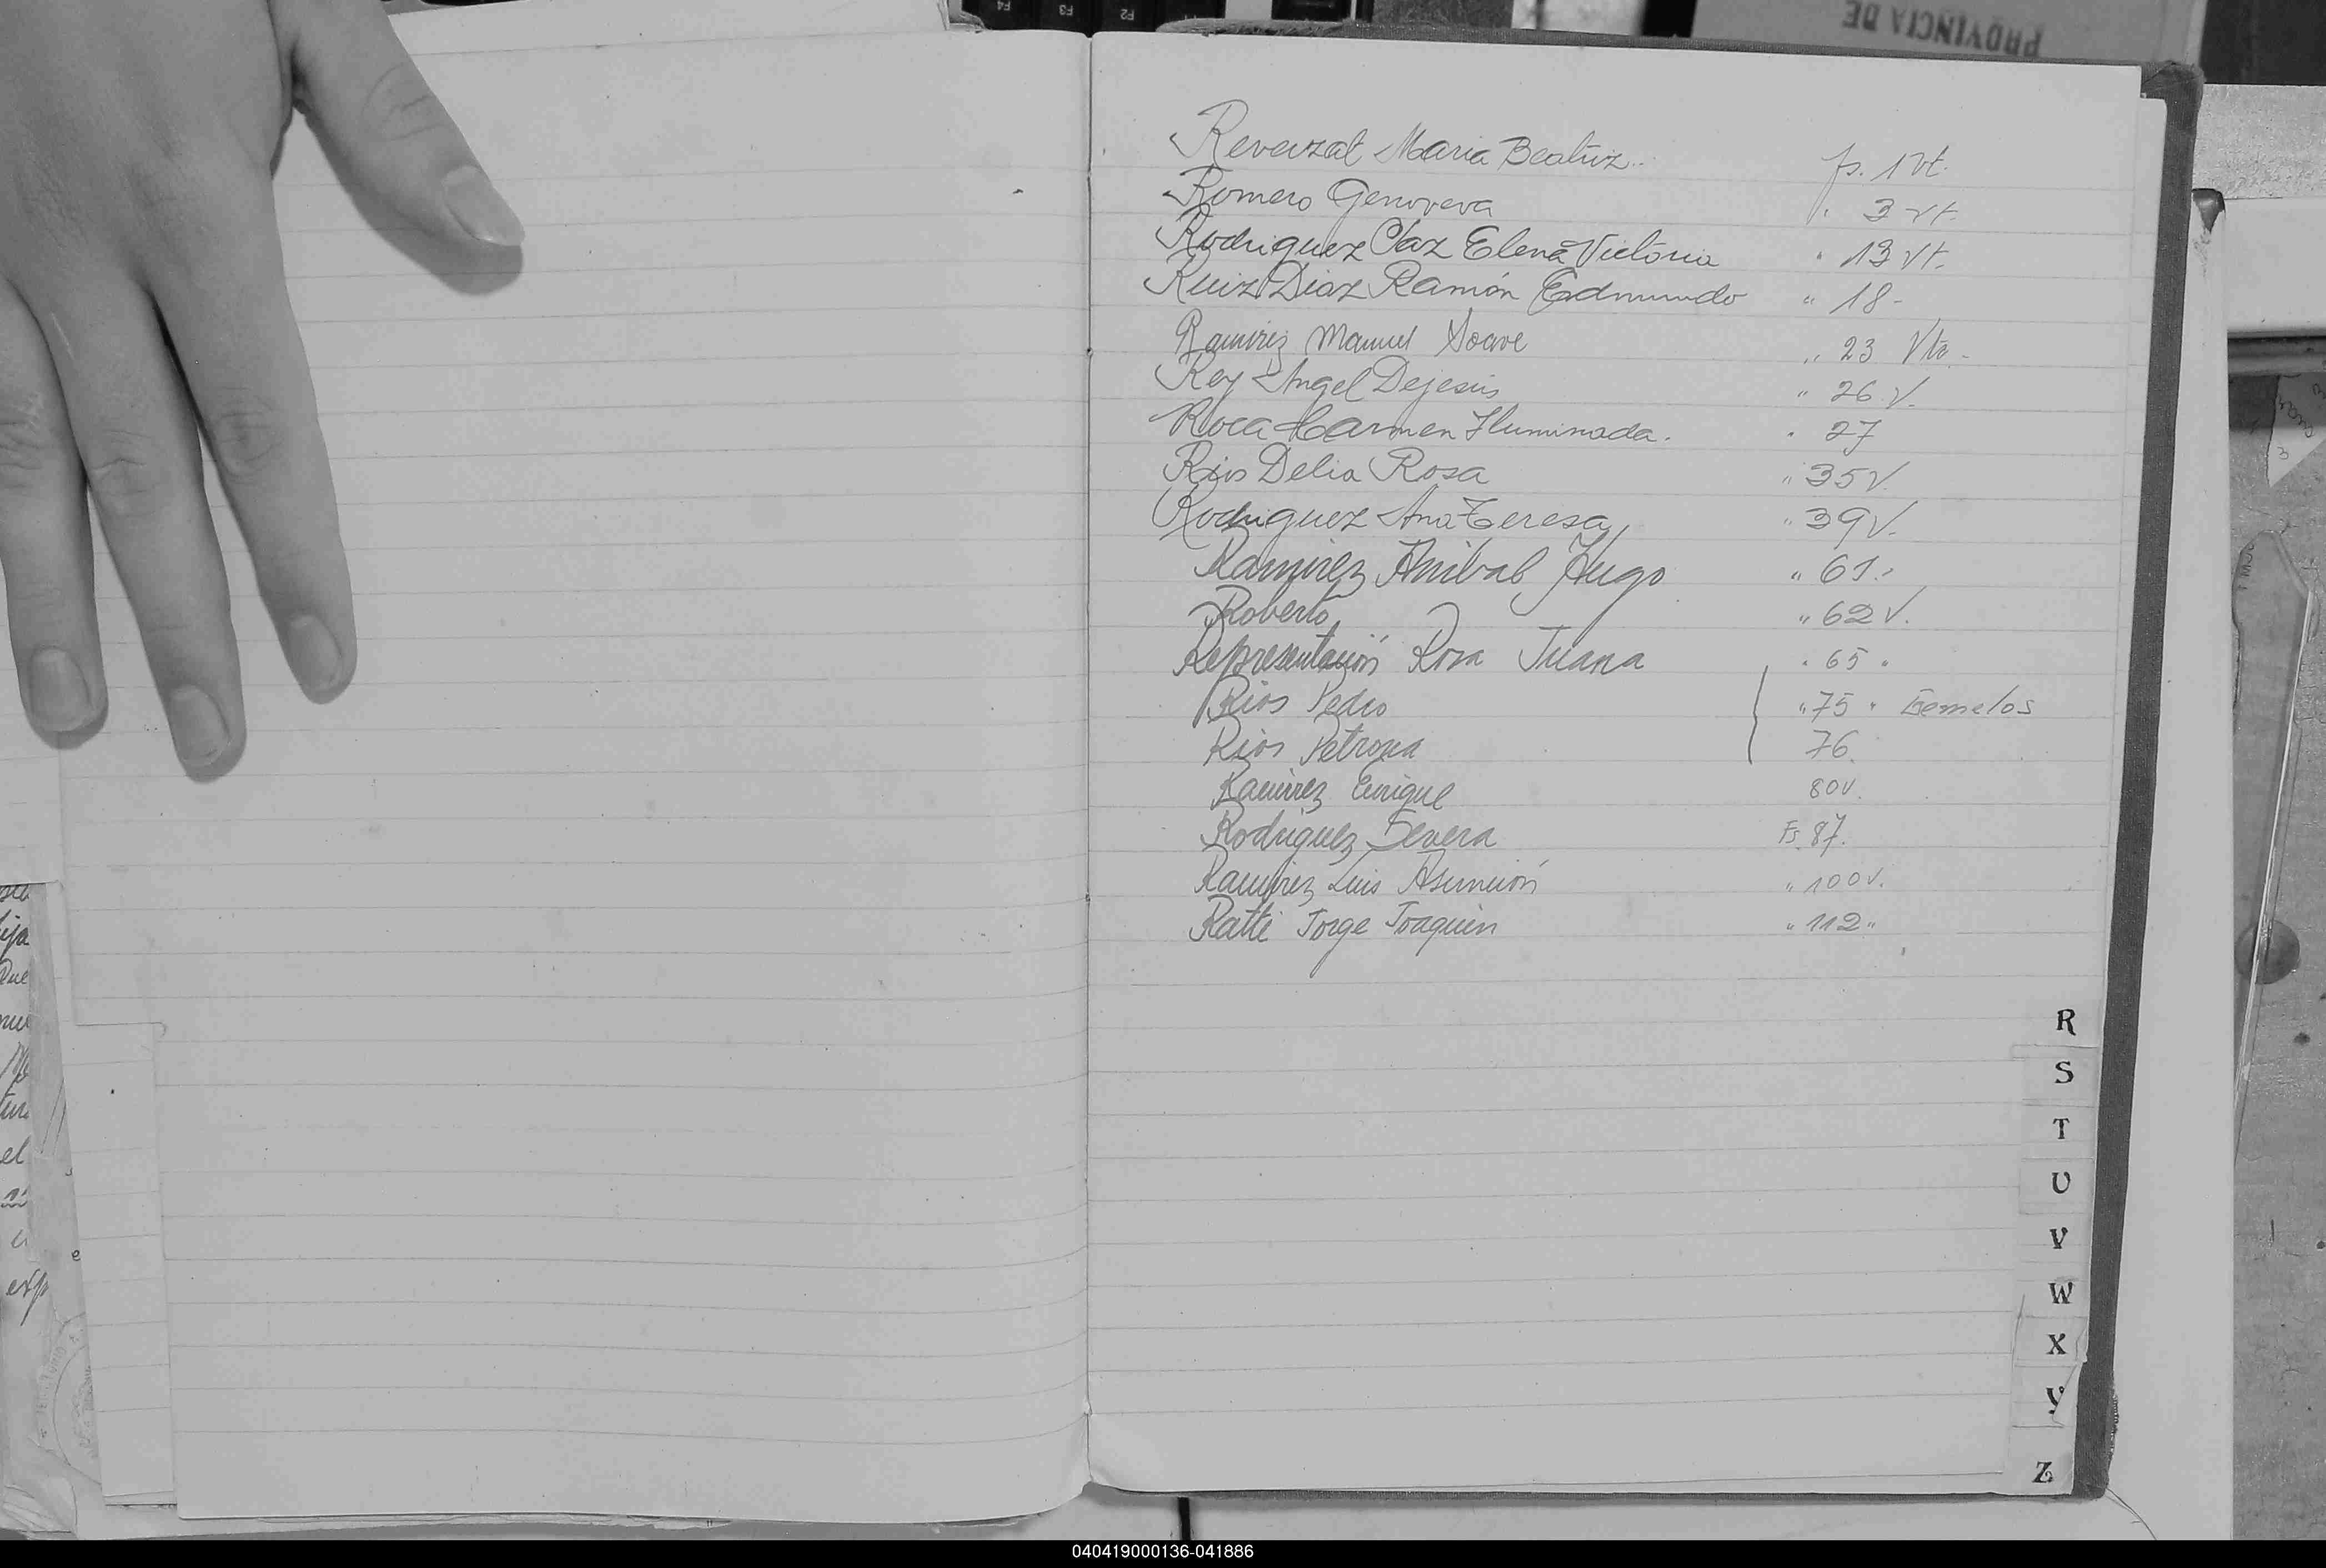 PROVINCIA DE
F4 F3 F2
Reverzat Maria Beatriz.. fs. 1 Vt.
Romero Genoveva " 3 Vt.
Rodriguez Claz Elena Victoria " 13 Vt.
Ruiz Diaz Ramón Edmundo " 18 -
Ramirez Manuel Soave " 23 Vta -
Rey Angel Dejesús " 26 V.
Roca Carmen Iluminada. " 27
Rios Delia Rosa " 35 V.
Rodriguez Ana Teresa, " 39 V.
Ramirez Anibal Hugo " 61.
Roberto " 62 V.
Representación Rosa Juana " 65 "
Rios Pedro " 75 " Gemelos
Rios Petrona 76.
Ramirez Enrique 80 V.
Rodriguez Severa Fs. 87.
Ramirez Luis Asunción " 100 V.
Ratti Jorge Joaquin " 112 "
R
S
T
U
V
W
X
Y
Z
ija
el
exp
040419000136-041886